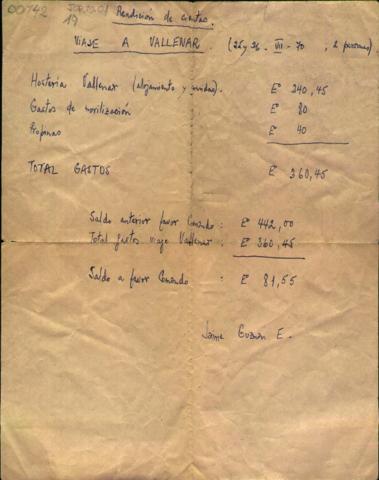 00742
19
Rendición de cuentas.
VIAJE A VALLENAR. (25 y 26 - VII - 70, 2 personas)
Hostería Vallenar (alojamiento y comidas). Eº 240,45
Gastos de movilización Eº 80
Propinas Eº 40
TOTAL GASTOS Eº 360,45
Saldo anterior favor Comando : Eº 442,00
Total gastos viaje Vallenar : Eº 360,45
Saldo a favor Comando : Eº 81,55
Jaime Guzmán E.